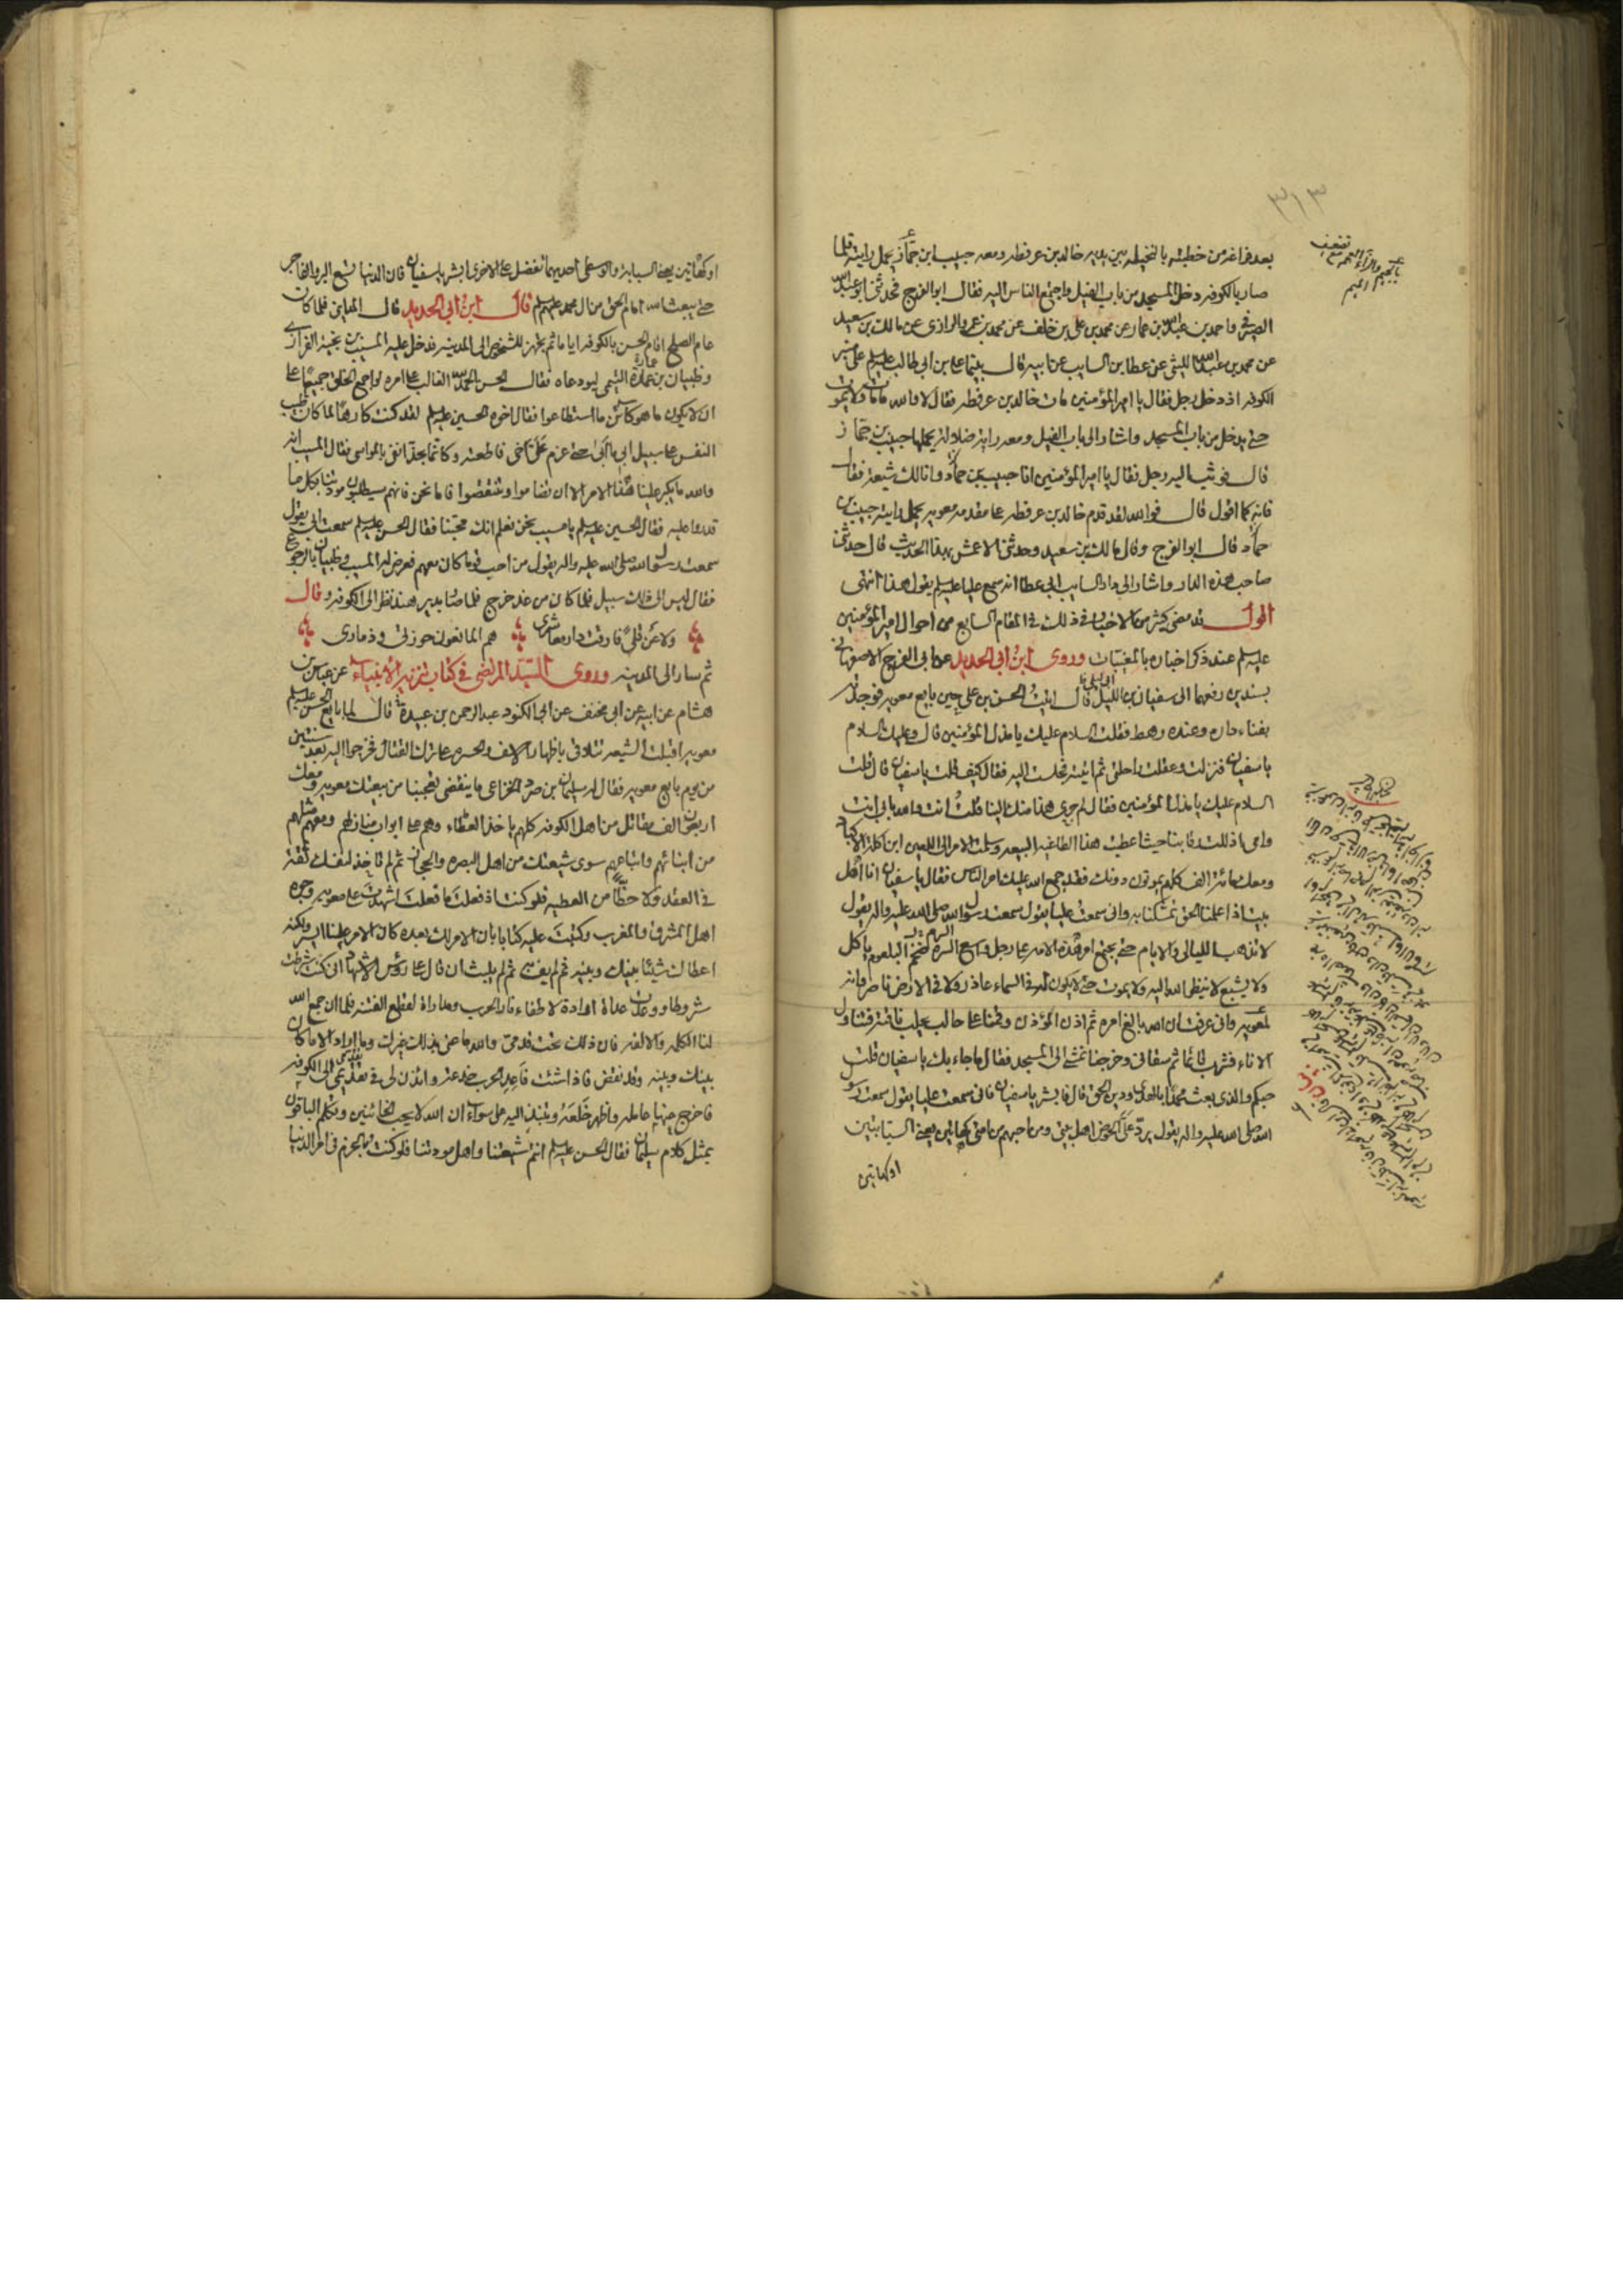 ٣١٣
بعد فراغه من خطبته بالنخيله بين يديه خالد بن عرفطه ومعه حبيب ابن جمّاز يحمل رايته فلما
صار بالكوفه دخل المسجد من باب الفيل واجتمع الناس اليه فقال ابو الفرج فحدثنى ابو عبيد
الصيرفى واحمد بن عبيد الله بن عمار عن محمد بن على بن خلف عن محمد بن عمرو الرازى عن مالك بن سعيد
عن محمد بن عبد الله الليثى عن عطا بن السايب عن ابيه قال بينما على بن ابى طالب عليه السلم على منبر
الكوفه اذ دخل رجل فقال يا امير المؤمنين مات خالد بن عرفطه فقال لا والله ما مات ولا يموت
حتى يدخل من باب المسجد واشار الى باب الفيل ومعه راية ضلالة يحملها حبيب بن جماز
قال فوثب اليه رجل فقال يا امير المؤمنين انا حبيب بن حماد وانا لك شيعة فقال
فانه كما اقول قال فوالله لقد قدم خالد بن عرفطه على مقدمه معويه يحمل رايته حبيب بن
حماد قال ابو الفرج وقال مالك بن سعيد وحدثنى الاعمش بهذا الحديث قال حدثنى
صاحب هذه الدار واشار الى دار السايب ابى عطا انه سمع عليا عليه السلم يقول هذا انتهى
اقول قد مضى كثير من الاخبار فى ذلك فى المقام السابع من احوال امير المؤمنين
عليه السلم عند ذكر اخباره بالمغيبات وروى ابن ابى الحديد عن ابى الفرج الاصفهانى
بسندين رفعهما الى سفيان بن الليل قال اتيتُ الحسن بن على حين بايع معويه فوجدته
بفناء داره وعنده رهط فقلت السلام عليك يا مذل المؤمنين قال وعليك السلام
يا سفيان فنزلت وعقلت راحلتى ثم اتيته فجلست اليه فقال كيف قلت يا سفيان قال قلت
السلام عليك يا مذل المؤمنين فقال لم جرى هذا منك الينا قلتُ انت والله بابى انت
وامى اذللت رقابنا حيث اعطيت هذا الطاغيه البيعه وسلمت الامر الى اللعين ابن اكلة الاكباد
ومعك مائة الف كلهم يموتون دونك فقد جمع الله عليك امر الناس فقال يا سفيان انا اهل
بيت اذا علمنا الحق تمسكنا به وانى سمعت عليا يقول سمعت رسول الله صلى الله عليه واله يقول
لا تذهب الليالى والايام حتى يجتمع امر هذه الامه على رجل واسع السره ضخم البلعوم ياكل
ولا يشبع لا ينظر الله اليه ولا يموت حتى لا يكون له فى السماء عاذر ولا فى الارض ناصر وانه
لمعويه وانى عرفت ان الله بالغ امره ثم اذن المؤذن وقمنا على حالب يحلب ناقته فتناول
الاناء فشرب قائما ثم سقانى وخرجنا نمشى الى المسجد فقال ما جاء بك يا سفيان قلت
حبكم والذى بعث محمدا بالهدى ودين الحق قال فابشر يا سفيان فانى سمعت عليا يقول سمعت رسول
الله صلى الله عليه واله يقول يرد علىّ الحوض اهل بيتى ومن احبهم من امتى كهاتين يعنى السبابتين
او كهاتين
او كهاتين يعنى السبابة والوسطى احديهما تفضل على الاخرى ابشر يا سفيان فان الدنيا تسع البر والفاجر
حتى يبعث الله امام الحق من ال محمد عليهم السلم قال ابن ابى الحديد قال المداينى فلما كان
عام الصلح اقام الحسن بالكوفه اياما ثم تجهز للشخوص الى المدينه فدخل عليه المسيب بن نجية الفزارى
وظبيان بن عمارة التيمى ليودعاه فقال الحسن الحمد لله الغالب على امره لو اجمع الخلق جميعًا على
ان لا يكون ما هو كائن ما استطاعوا فقال اخوه الحسين عليه السلم لقد كنت كارهًا لما كان طيب
النفس على سبيل ابى حتى عزم عَلَىّ اخى فاطعته وكانما يجذ انفى بالمواسى فقال المسيب انه
والله ما يكبر علينا هذا الامر الا ان تضاموا وتنتقصوا فاما نحن فانهم سيطلبون مودتنا بكل ما
قدروا عليه فقال الحسين عليه السلم يا مسيب نحن نعلم انك تحبّنا فقال الحسن عليه السلم سمعت ابى يقول
سمعت رسول الله صلى الله عليه واله يقول من احب قوما كان معهم فعرض له المسيب وظبيان بالرجوع
فقال ليس الى ذلك سبيل فلما كان من غد خرج فلما صار بدير هند نظر الى الكوفه وقال
ولا عن قلىً فارقت دار معاشرى هم المانعون حوزتى وذمارى
ثم سار الى المدينه وروى السيّد المرتضى فى كتاب تنزيه الانبياء عن عباس بن
هشام عن ابيه عن ابى مخنف عن ابى الكنود عبد الرحمن بن عبيدة قال لما بايع الحسن عليه السلم
معويه اقبلت الشيعه تتلاقى باظهار الاسف والحسره على ترك القتال فخرجوا اليه بعد سنتين
من يوم بايع معويه فقال له سليمان بن صرد الخزاعى ما ينقضى تعجبنا من بيعتك معويه ومعك
اربعون الف مقاتل من اهل الكوفه كلهم ياخذ العطاء وهم على ابواب منازلهم ومعهم مثلهم
من ابنائهم واتباعهم سوى شيعتك من اهل البصره والحجاز ثم لم تاخذ لنفسك ثقة
فى العقد ولا حظّا من العطيه فلو كنت اذ فعلتَ ما فعلتَ اشهدتَ على معويه وجوه
اهل المشرق والمغرب وكتبتَ عليه كتابا بان الامر لك بعده كان الامر علينا ايسر ولكنه
اعطاك شيئا بينك وبينه ثم لم يف به ثم لم يلبث ان قال على رؤس الاشهاد انى كنت شرطت
شروطا ووعدت عداة ارادة لاطفاء نار الحرب ومداراة لقطع الفتنه فلما ان جمع الله
لنا الكلمه والالفه فان ذلك تحت قدمى والله ما عنى بذلك غيرك وما اراد الا ما كان
بينك وبينه وقد نقض فاذا شئت فاعد الحرب خدعة وائذن لى فى تقدمى الى الكوفه
فاخرج عنها عامله واظهر خَلعَهُ وتنبذ اليه على سواء ان الله لا يحب الخائنين وتكلم الباقون
بمثل كلام سليمان فقال الحسن عليه السلم انتم شيعتنا واهل مودتنا فلو كنت بالحزم فى امر الدنيا